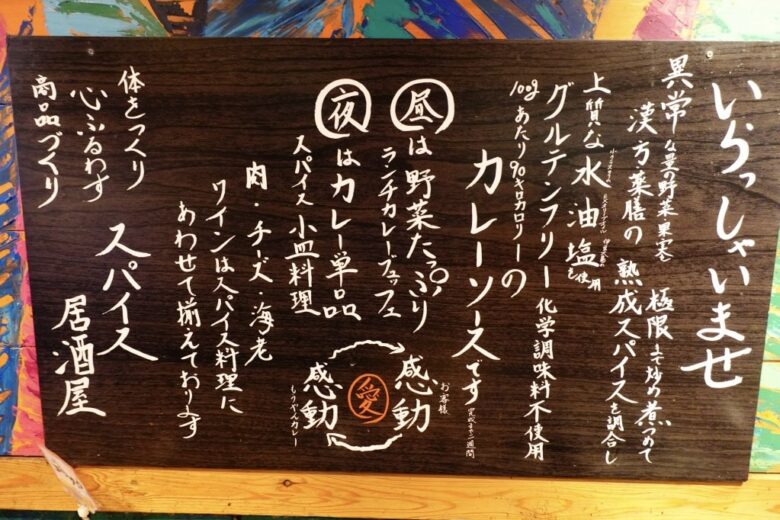 いらっしゃいませ
異常な量の野菜・果実を極限まで炒め煮つめて
漢方薬膳の熟成スパイスを調合し
上質な水油塩を使用
グルテンフリー化学調味料不使用
100gあたり90キロカロリーの
カレーソースです
完成まで二週間
昼は野菜たっぷり
ランチカレーブッフェ
夜はカレー単品
スパイス小皿料理
肉・チーズ・海老
ワインはスパイス料理に
あわせて揃えております
お客様
感動
愛
感動
もうやんカレー
体をつくり
心ふるわす
商品づくり
スパイス
居酒屋